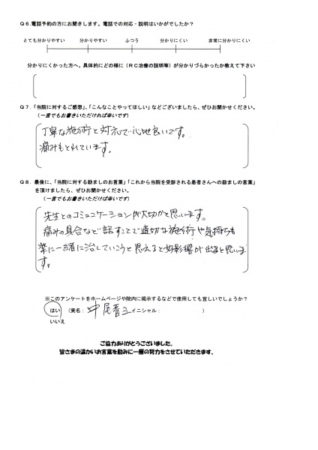 Q6.電話予約の方にお聞きします。電話での対応・説明はいかがでしたか？
とても分かりやすい 分かりやすい ふつう 分かりにくい 非常に分かりにくい
分かりにくかった方へ、具体的にどの様に（RC治療の説明等）が分かりづらかったか教えて下さい
Q7.「当院に対するご感想」、「こんなことやってほしい」などございましたら、ぜひお聞かせください。
（一言でもお書きいただければ幸いです）
丁寧な施術と対応で心地良いです。
痛みもとれています。
Q8.最後に、「当院に対する励ましのお言葉」「これから当院を受診される患者さんへの励ましの言葉」
を頂けましたら、ぜひお聞かせください。
（一言でもお書きいただければ幸いです）
先生とのコミュニケーションが大切かと思います。
痛みの具合など 話すことで適切な施術や気持ちも
楽に一緒に治していこうと思えると好影響が出ると思いま
す。
※このアンケートをホームページや院内に掲示するなどで使用しても宜しいでしょうか？
はい （実名： イニシャル： ）
いいえ
ご協力ありがとうございました。
皆さまの温かいお言葉を励みに一層の努力をさせていただきます。